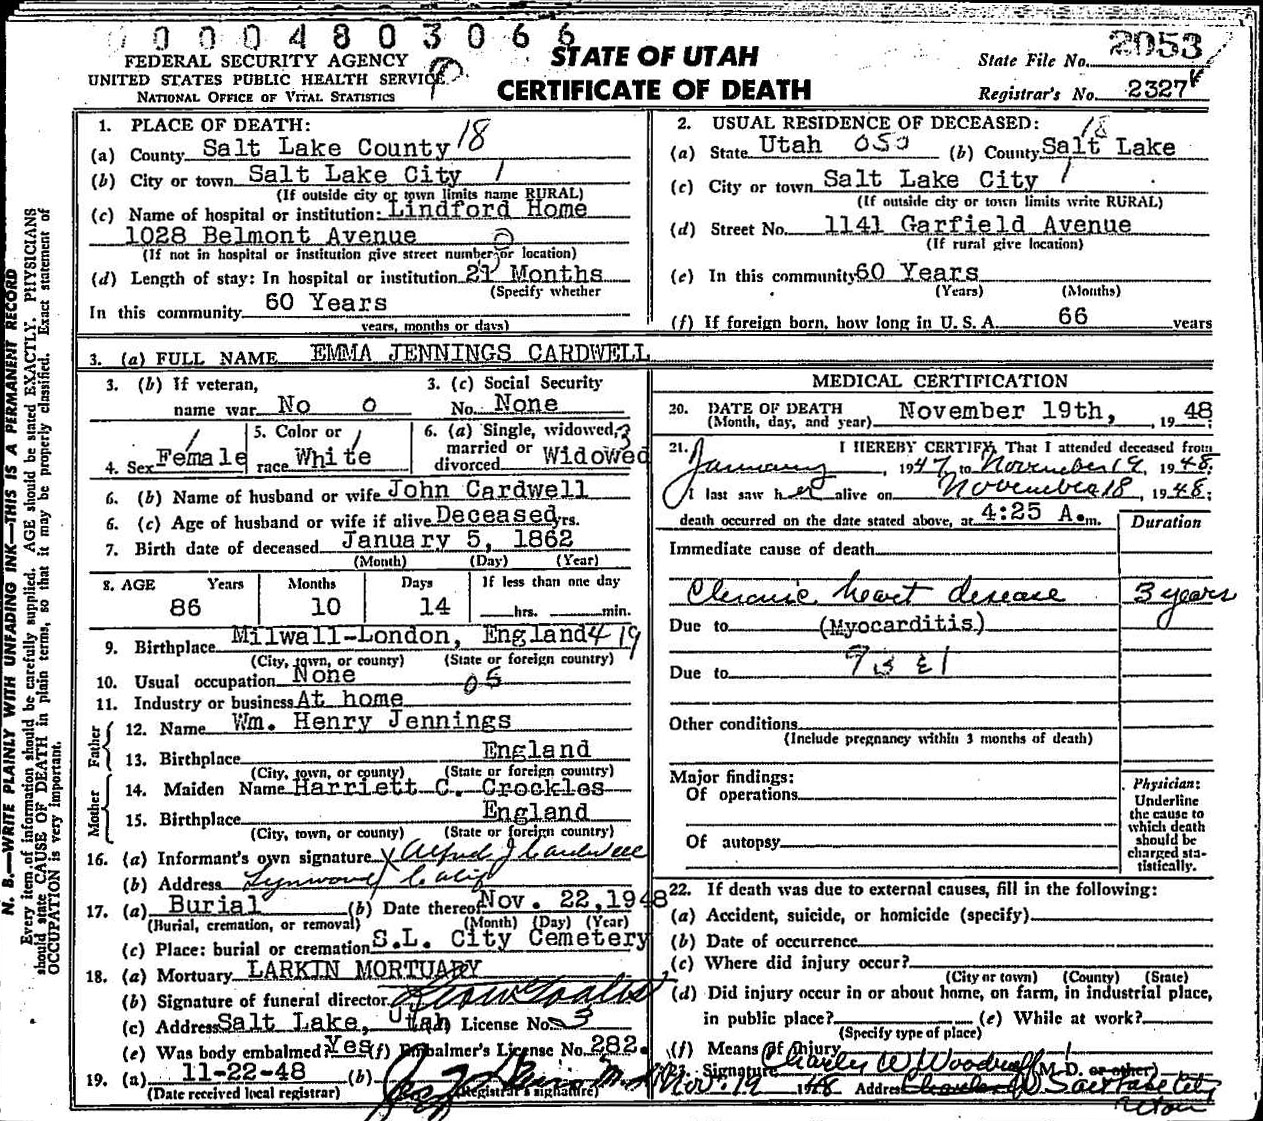 0004803066
FEDERAL SECURITY AGENCY
UNITED STATES PUBLIC HEALTH SERVICE
NATIONAL OFFICE OF VITAL STATISTICS
STATE OF UTAH
CERTIFICATE OF DEATH
State File No. 2053
Registrar's No. 2327
N. B.—WRITE PLAINLY WITH UNFADING INK—THIS IS A PERMANENT RECORD
Every item of information should be carefully supplied. AGE should be stated EXACTLY. PHYSICIANS
should state CAUSE OF DEATH in plain terms, so that it may be properly classified. Exact statement of
OCCUPATION is very important.
1. PLACE OF DEATH: 18
(a) County Salt Lake County
(b) City or town Salt Lake City 1
(If outside city or town limits name RURAL)
(c) Name of hospital or institution: Lindford Home
1028 Belmont Avenue
(If not in hospital or institution give street number or location)
(d) Length of stay: In hospital or institution 21 Months
(Specify whether
In this community 60 Years
years, months or days)
2. USUAL RESIDENCE OF DECEASED: 18
(a) State Utah 050 (b) County Salt Lake
(c) City or town Salt Lake City 1
(If outside city or town limits write RURAL)
(d) Street No. 1141 Garfield Avenue
(If rural give location)
(e) In this community 60 Years
(Years) (Months)
(f) If foreign born, how long in U. S. A. 66 years
3. (a) FULL NAME EMMA JENNINGS CARDWELL
3. (b) If veteran,
name war No 0
3. (c) Social Security
No. None
4. Sex Female
5. Color or
race White
6. (a) Single, widowed,
married or
divorced Widowed
6. (b) Name of husband or wife John Cardwell
6. (c) Age of husband or wife if alive Deceased yrs.
7. Birth date of deceased January 5, 1862
(Month) (Day) (Year)
8. AGE Years Months Days If less than one day
86 10 14 hrs. min.
9. Birthplace Milwall-London, England 419
(City, town, or county) (State or foreign country)
10. Usual occupation None 05
11. Industry or business At home
Father
12. Name Wm. Henry Jennings
13. Birthplace England
(City, town, or county) (State or foreign country)
Mother
14. Maiden Name Harriett C. Crockles
15. Birthplace England
(City, town, or county) (State or foreign country)
16. (a) Informant's own signature X Alfred J Cardwell
(b) Address Lynwood Calif
17. (a) Burial (b) Date thereof Nov. 22, 1948
(Burial, cremation, or removal) (Month) (Day) (Year)
(c) Place: burial or cremation S.L. City Cemetery
18. (a) Mortuary LARKIN MORTUARY
(b) Signature of funeral director
(c) Address Salt Lake, Utah (d) License No. 3
(e) Was body embalmed? Yes (f) Embalmer's License No. 282.
19. (a) 11-22-48 (b)
(Date received local registrar) (Registrar's signature)
MEDICAL CERTIFICATION
20. DATE OF DEATH November 19th, , 19 48
(Month, day, and year)
21. I HEREBY CERTIFY, That I attended deceased from
January , 1947, to November 19, 1948;
I last saw her alive on November 18, 1948;
death occurred on the date stated above, at 4:25 A.m. Duration
Immediate cause of death
Chronic heart disease 3 years
Due to (Myocarditis)
Due to 93 E1
Other conditions
(Include pregnancy within 3 months of death)
Major findings:
Of operations
Of autopsy
Physician:
Underline
the cause to
which death
should be
charged sta-
tistically.
22. If death was due to external causes, fill in the following:
(a) Accident, suicide, or homicide (specify)
(b) Date of occurrence
(c) Where did injury occur?
(City or town) (County) (State)
(d) Did injury occur in or about home, on farm, in industrial place,
in public place? (e) While at work?
(Specify type of place)
(f) Means of Injury
23. Signature Charles W Woodruff (M. D. or other)
Nov. 19 1948 Address Salt Lake City
Utah